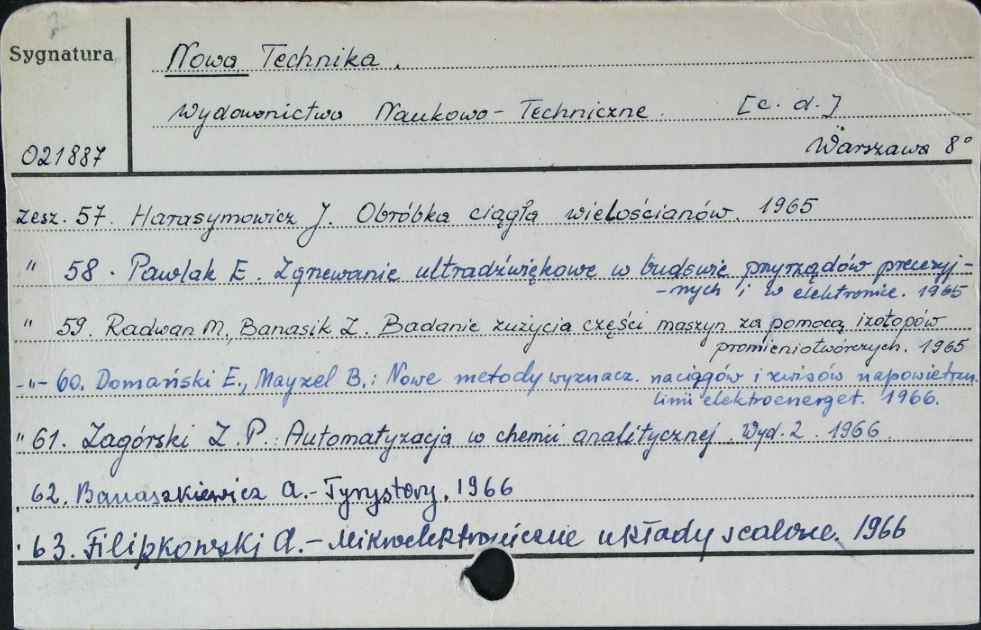 Sygnatura
Nowa Technika.
Wydawnictwo Naukowo-Techniczne. [c. d.]
Warszawa 8°
021887
zesz. 57. Harasymowicz J. Obróbka ciągła wielościanów. 1965
" 58. Pawlak E. Zgrzewanie ultradźwiękowe w budowie przyrządów precezyj-
-nych i w elektronice. 1965
" 59. Radwan M., Banasik Z. Badanie zużycia części maszyn za pomocą izotopów
promieniotwórczych. 1965
-"- 60. Domański E., Mayzel B.: Nowe metody wyznacz. naciągów i zwisów napowietrzn.
linii elektroenerget. 1966.
" 61. Zagórski Z. P.: Automatyzacja w chemii analitycznej. Wyd. 2. 1966
62. Banaszkiewicz A.- Tyrystory. 1966
63. Filipkowski A.- Mikroelektroniczne układy scalone. 1966